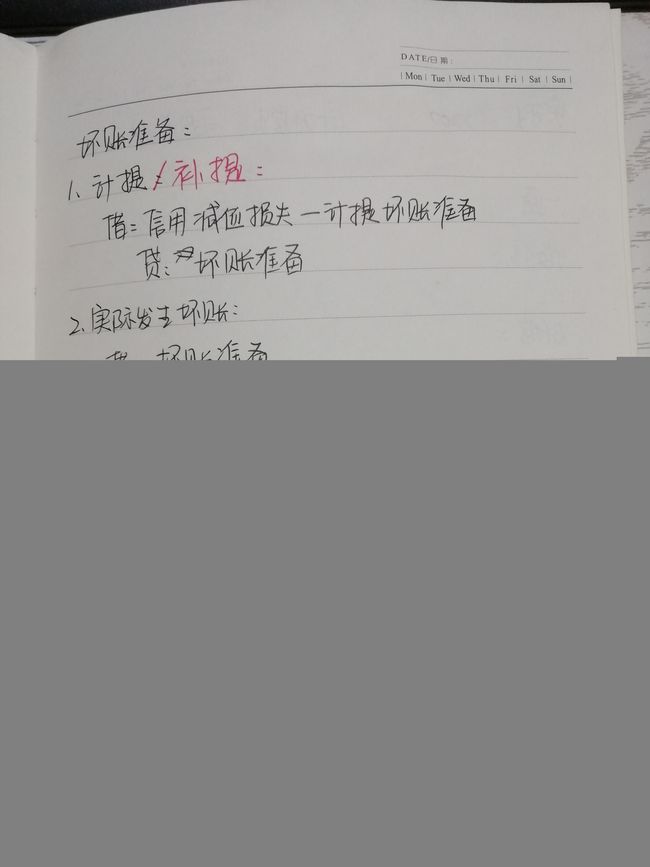 DATE/日期:
Mon Tue Wed Thu Fri Sat Sun
坏账准备:
1、计提/补提:
借:信用减值损失—计提坏账准备
贷:坏账准备
2、实际发生坏账:
坏账准备